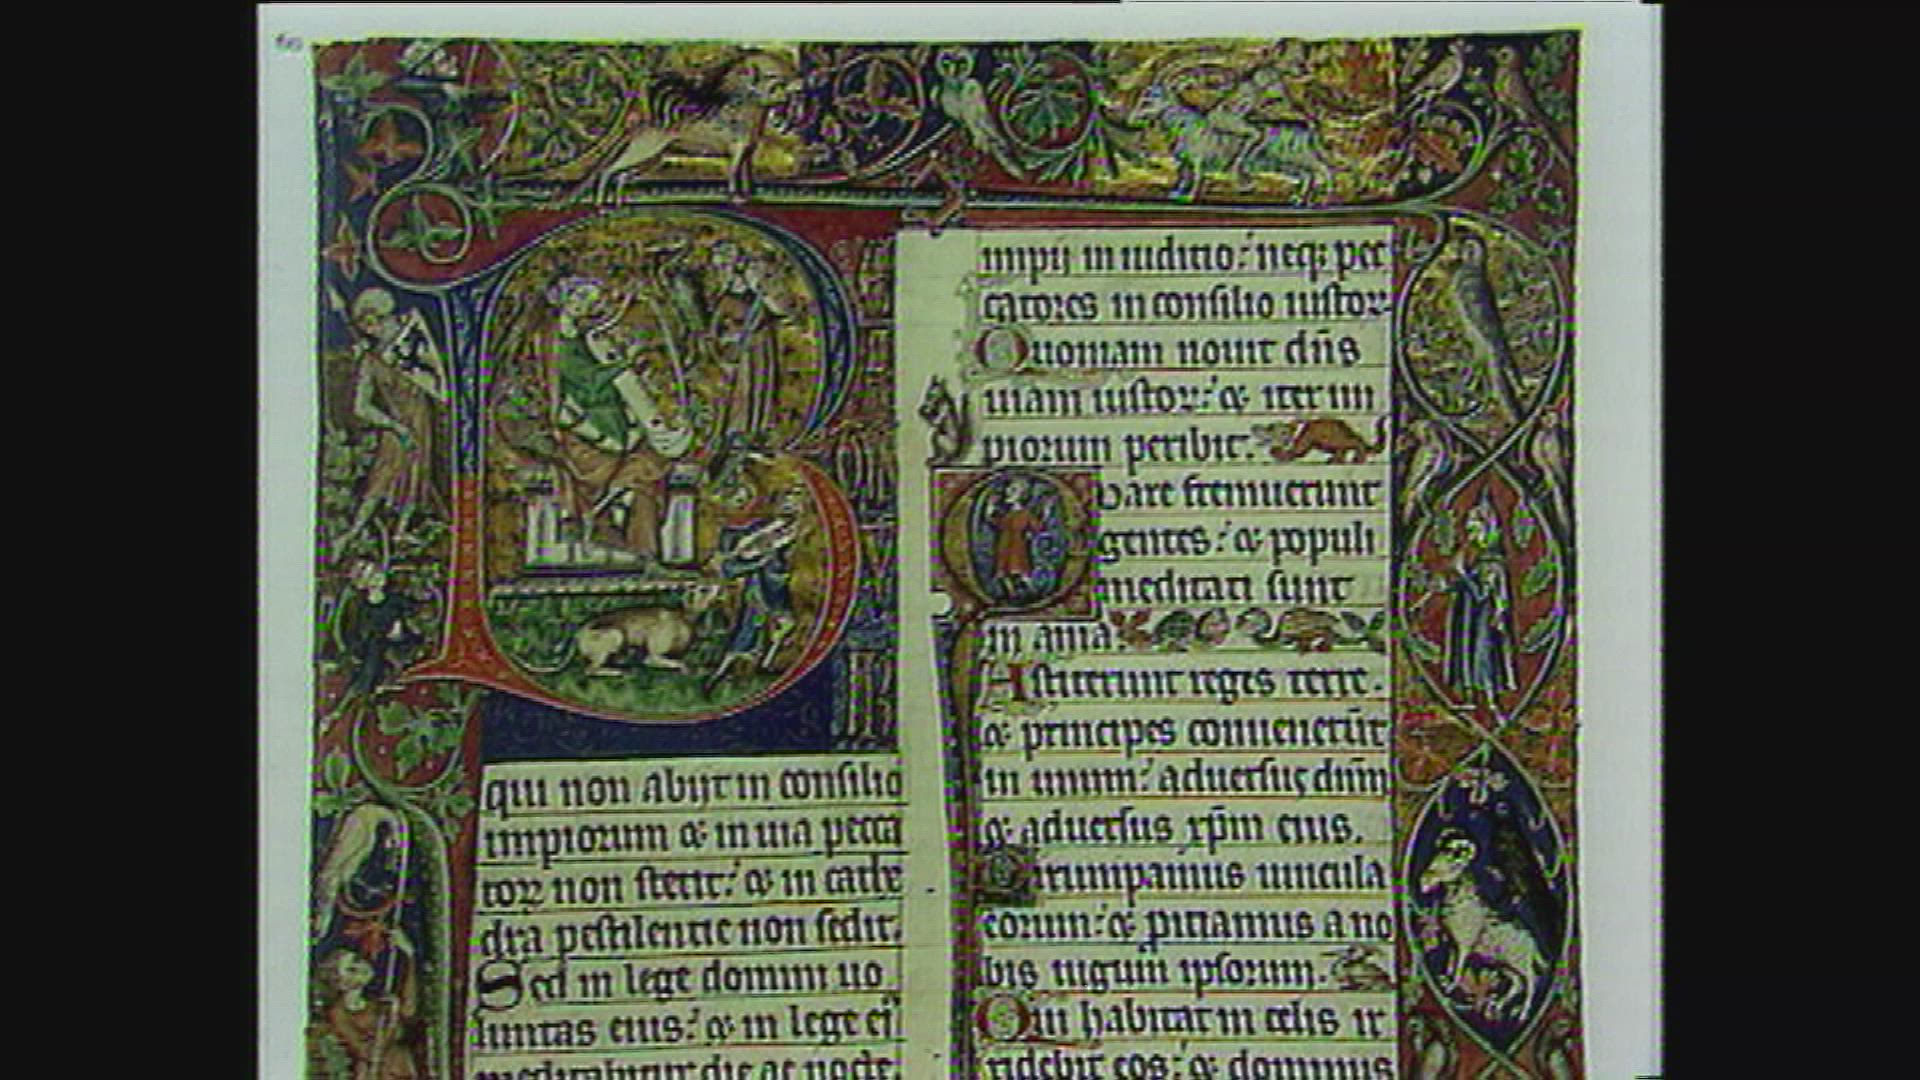 qui non abijt in consilio
impiorum & in uia pecca
toꝝ non stetit: & in cathe
dra pestilentie non sedit.
Sed in lege domini uo
luntas eius: & in lege ei
meditabitur die ac nocte.
impij in iuditio: neqꝫ pec
catores in consilio iustoꝝ
Quoniam nouit dn̄s
uiam iustoꝝ: & iter im
piorum peribit.
Quare fremuerunt
gentes: & populi
meditati sunt
in ania.
Astiterunt reges terre.
& principes conuenerūt
in unum: aduersus dūm
& aduersus xp̄m eius.
Dirumpamus uincula
eorum: & piciamus a no
bis iugum ipsorum.
Qui habitat in celis ir
ridebit eos: & dominus